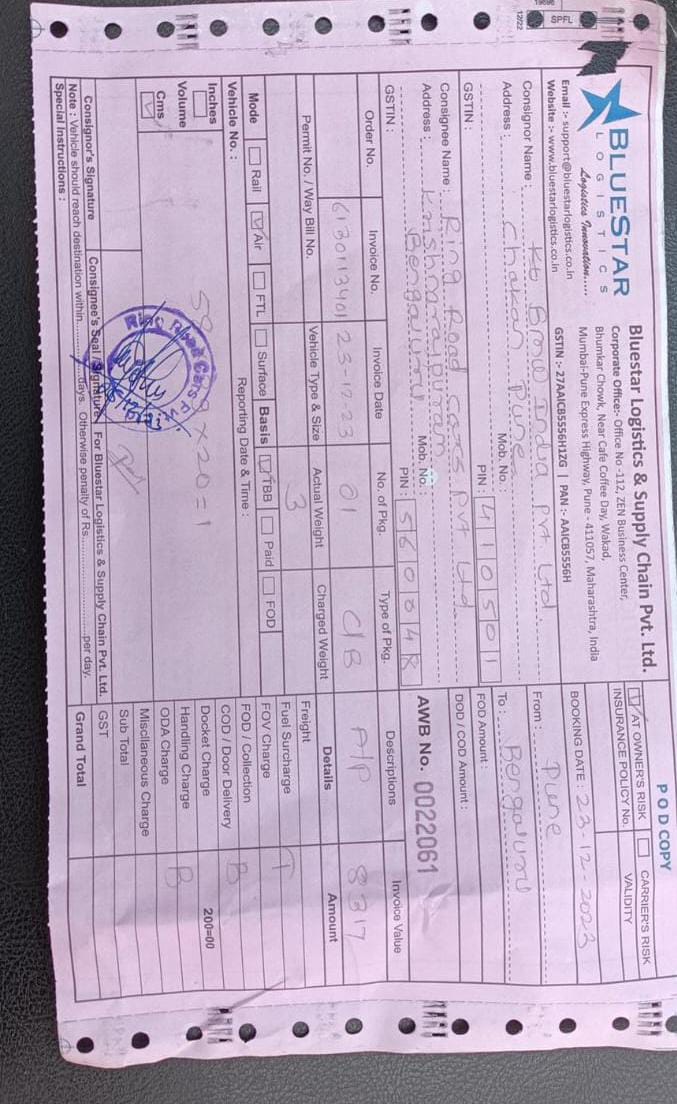 SPFL
12/22
POD COPY
BLUESTAR
LOGISTICS
Logistics Innovation.....
Email :- support@bluestarlogistics.co.in
Website :- www.bluestarlogistics.co.in
Bluestar Logistics & Supply Chain Pvt. Ltd.
Corporate Office:- Office No -112, ZEN Business Center,
Bhumkar Chowk, Near Cafe Coffee Day, Wakad,
Mumbai-Pune Express Highway, Pune - 411057, Maharashtra, India
GSTIN :- 27AAICB5556H1ZG | PAN :- AAICB5556H
AT OWNER'S RISK CARRIER'S RISK
INSURANCE POLICY No. VALIDITY
BOOKING DATE : 23-12-2023
Consignor Name : India Pvt. Ltd.
Address : Chakan Pune Mob. No. :
GSTIN : PIN : 410501
From : Pune
To : Bengaluru
FOD Amount :
DOD / COD Amount :
Consignee Name : Ring Road Cars Pvt Ltd.
Address : Krishnarajpuram Mob. No. :
Bengaluru
GSTIN : PIN : 560048
AWB No. 0022061
Order No. Invoice No. Invoice Date No. of Pkg. Type of Pkg. Descriptions Invoice Value
6130113401 23.12.23 01 C/B A/P 8317
Permit No. / Way Bill No. Vehicle Type & Size Actual Weight Charged Weight Details Amount
3
Freight
Fuel Surcharge
Mode Rail Air FTL Surface Basis TBB Paid FOD
FOV Charge
Vehicle No. : Reporting Date & Time :
FOD / Collection
COD / Door Delivery
Inches
Docket Charge 200=00
Volume
Handling Charge
Cms
ODA Charge
Miscllaneous Charge
Sub Total
Ring Road Cars
Consignor's Signature Consignee's Seal / Signature For Bluestar Logistics & Supply Chain Pvt. Ltd.
GST
Note : Vehicle should reach destination within..............days. Otherwise penalty of Rs..............................per day.
Grand Total
Special Instructions :